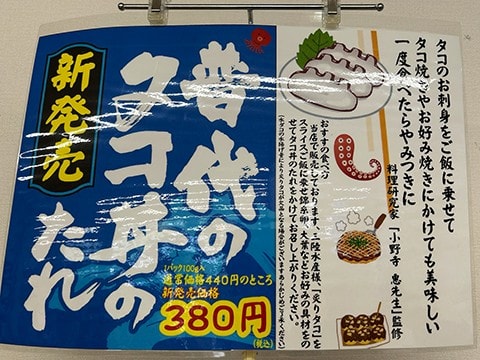 新発売
普代の
タコ丼の
たれ
1パック100g入
通常価格440円のところ
新発売価格
380円
(税込)
タコのお刺身をご飯に乗せて
タコ焼きやお好み焼きにかけても美味しい
一度食べたらやみつきに
料理研究家「小野寺 恵先生」監修
おすすめ食べ方
当店で販売しております、三陸水産様、「炙りタコ」を
スライスご飯に乗せ錦糸卵、大葉などお好みの具材をの
せてタコ丼のたれをかけてお召し上がりください。